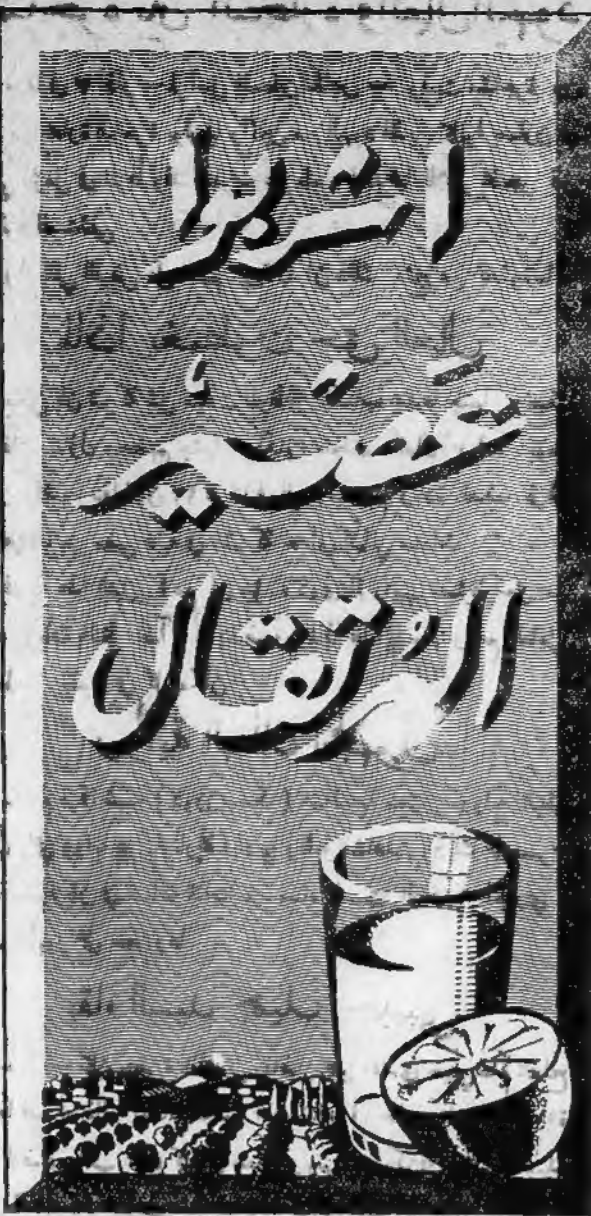 اشربوا
عَصْير
البُرتقال